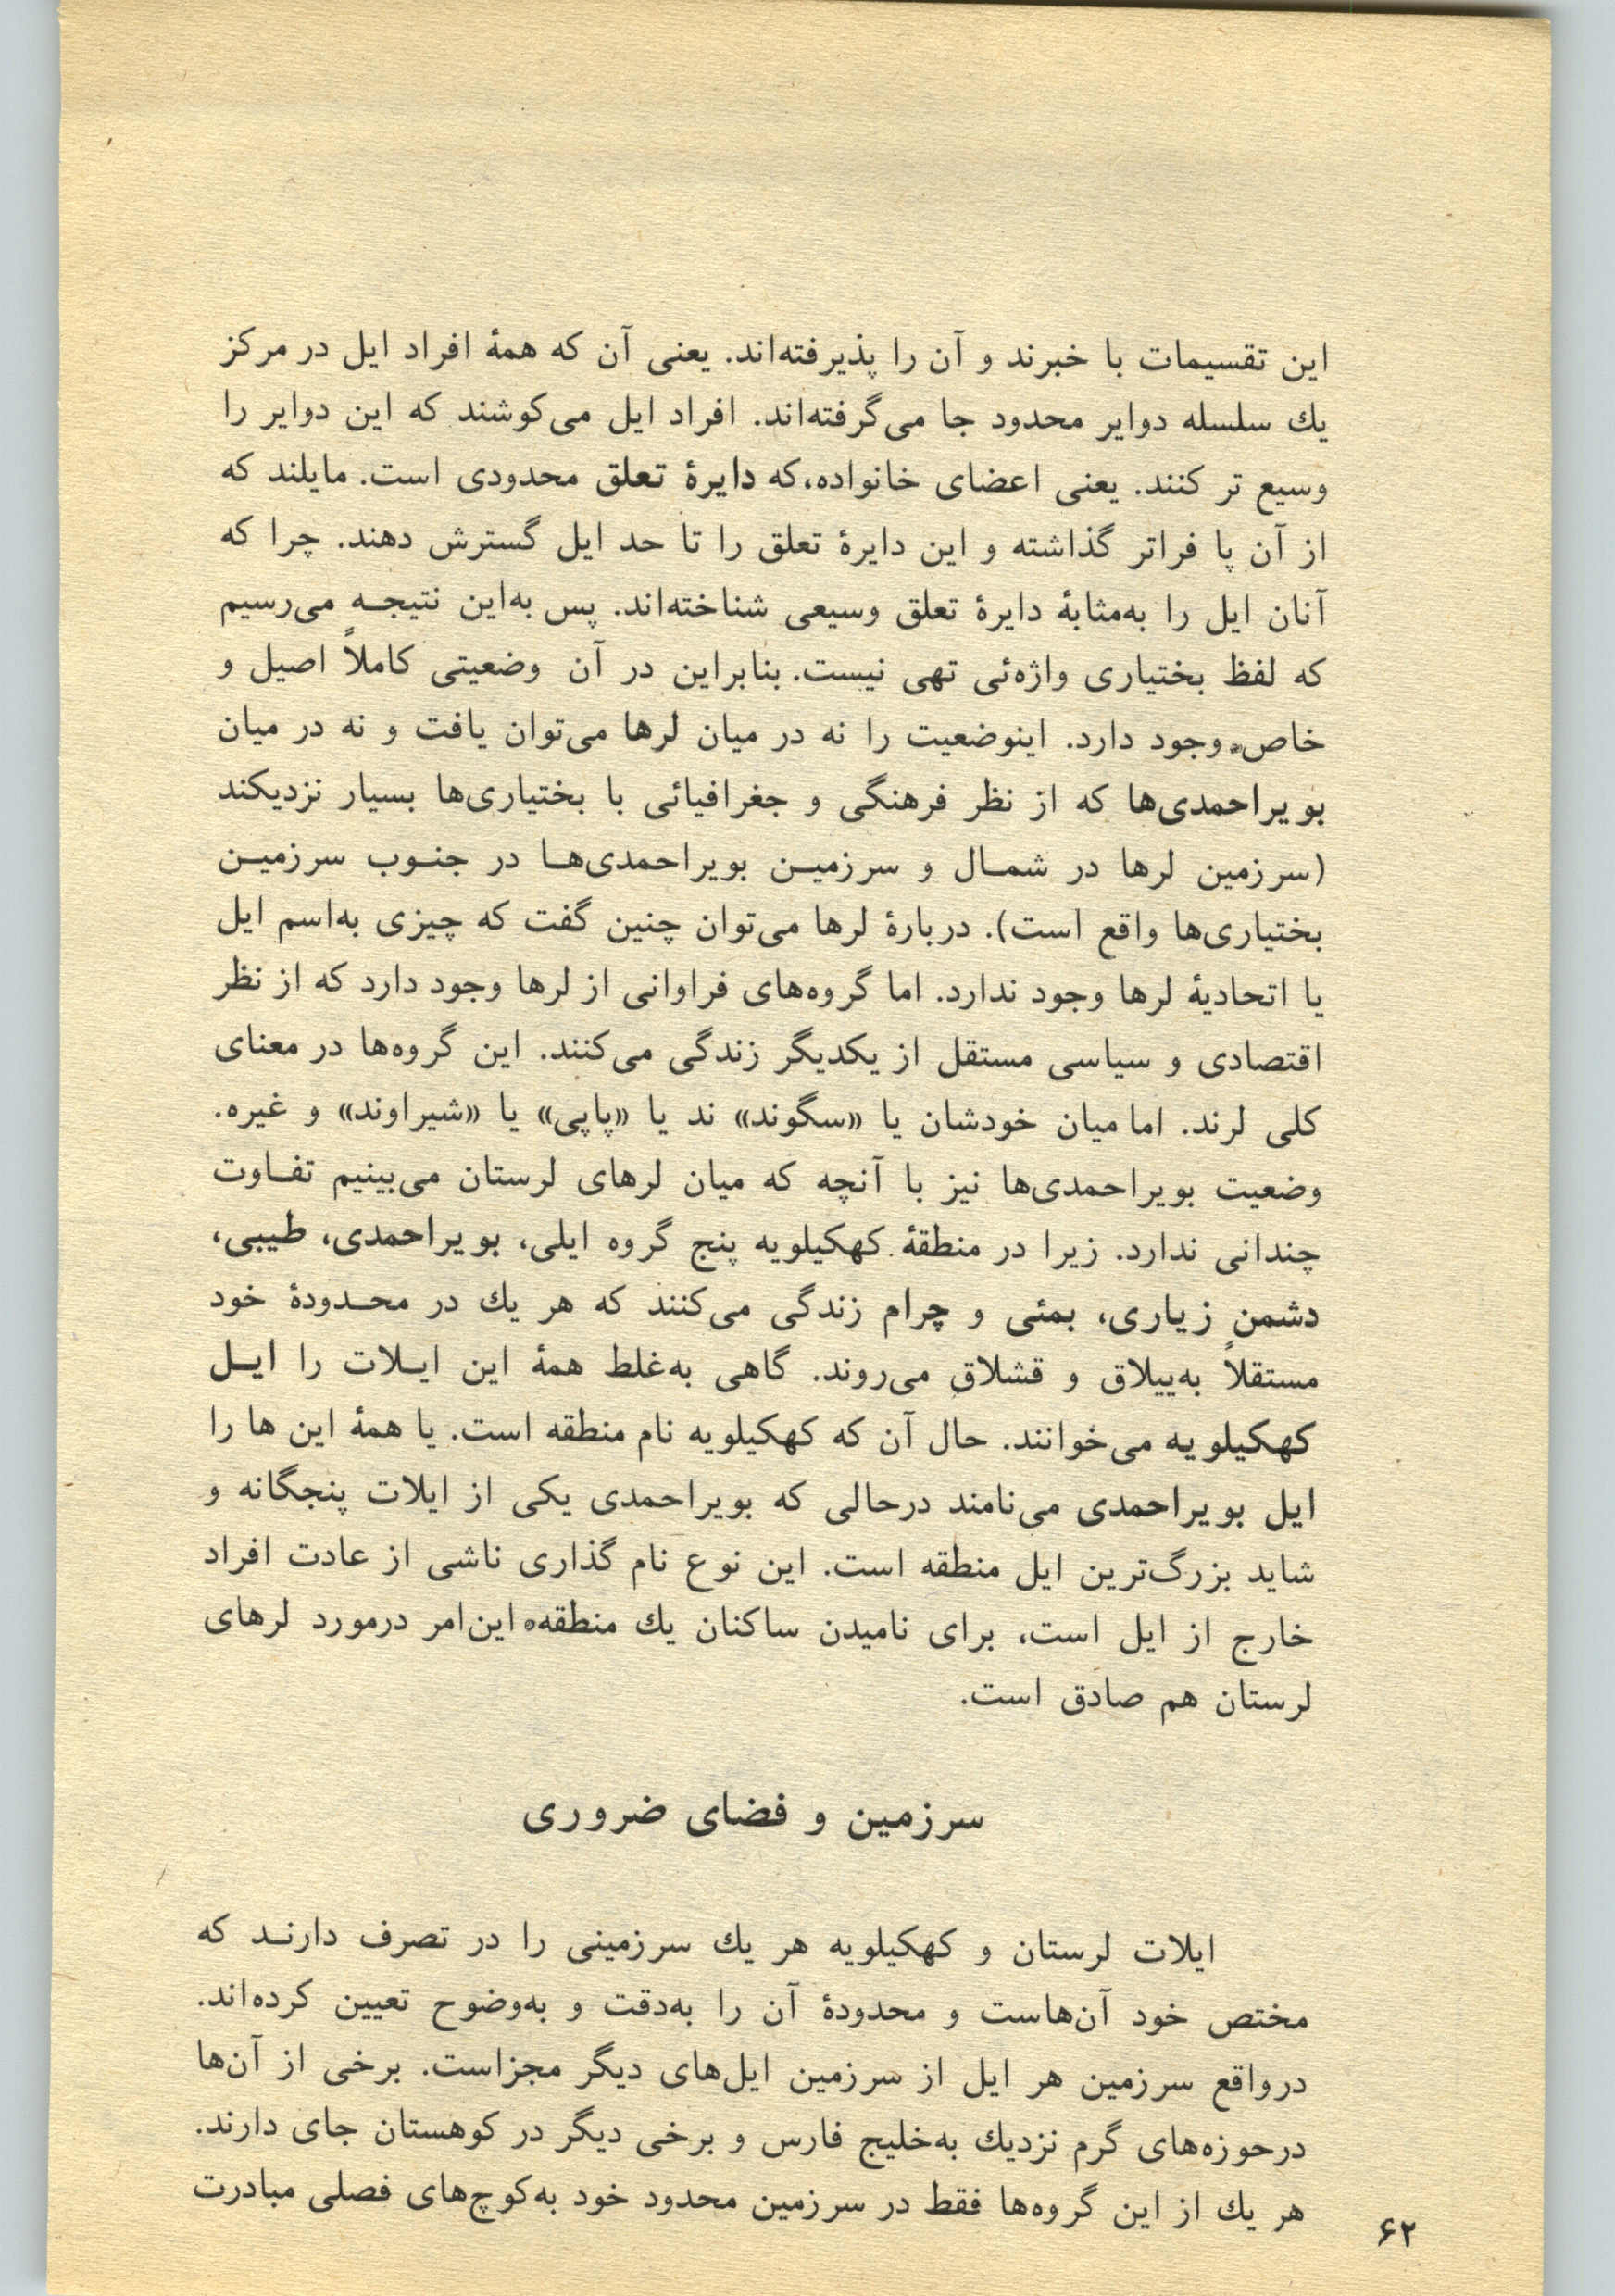 این تقسیمات با خبرند و آن را پذیرفته‌اند. یعنی آن که همهٔ افراد ایل در مرکز
یك سلسله دوایر محدود جا می‌گرفته‌اند. افراد ایل می‌کوشند که این دوایر را
وسیع تر کنند. یعنی اعضای خانواده،که دایرهٔ تعلق محدودی است. مایلند که
از آن پا فراتر گذاشته و این دایرهٔ تعلق را تا حد ایل گسترش دهند. چرا که
آنان ایل را به‌مثابهٔ دایرهٔ تعلق وسیعی شناخته‌اند. پس به‌این نتیجــه می‌رسیم
که لفظ بختیاری واژه‌ئی تهی نیست. بنابراین در آن وضعیتی کاملاً اصیل و
خاص وجود دارد. اینوضعیت را نه در میان لرها می‌توان یافت و نه در میان
بویراحمدی‌ها که از نظر فرهنگی و جغرافیائی با بختیاری‌ها بسیار نزدیکند
(سرزمین لرها در شمــال و سرزمیــن بویراحمدی‌هــا در جنــوب سرزمیــن
بختیاری‌ها واقع است). دربارهٔ لرها می‌توان چنین گفت که چیزی به‌اسم ایل
یا اتحادیهٔ لرها وجود ندارد. اما گروه‌های فراوانی از لرها وجود دارد که از نظر
اقتصادی و سیاسی مستقل از یکدیگر زندگی می‌کنند. این گروه‌ها در معنای
کلی لرند. اما میان خودشان یا «سگوند» ند یا «پاپی» یا «شیراوند» و غیره.
وضعیت بویراحمدی‌ها نیز با آنچه که میان لرهای لرستان می‌بینیم تفــاوت
چندانی ندارد. زیرا در منطقهٔ کهکیلویه پنج گروه ایلی، بویراحمدی، طیبی،
دشمن زیاری، بمئی و چرام زندگی می‌کنند که هر یك در محــدودهٔ خود
مستقلاً به‌ییلاق و قشلاق می‌روند. گاهی به‌غلط همهٔ این ایــلات را ایــل
کهکیلویه می‌خوانند. حال آن که کهکیلویه نام منطقه است. یا همهٔ این ها را
ایل بویراحمدی می‌نامند درحالی که بویراحمدی یکی از ایلات پنجگانه و
شاید بزرگ‌ترین ایل منطقه است. این نوع نام گذاری ناشی از عادت افراد
خارج از ایل است، برای نامیدن ساکنان یك منطقه. این‌امر درمورد لرهای
لرستان هم صادق است.
سرزمین و فضای ضروری
ایلات لرستان و کهکیلویه هر یك سرزمینی را در تصرف دارنــد که
مختص خود آن‌هاست و محدودهٔ آن را به‌دقت و به‌وضوح تعیین کرده‌اند.
درواقع سرزمین هر ایل از سرزمین ایل‌های دیگر مجزاست. برخی از آن‌ها
درحوزه‌های گرم نزدیك به‌خلیج فارس و برخی دیگر در کوهستان جای دارند.
هر یك از این گروه‌ها فقط در سرزمین محدود خود به‌کوچ‌های فصلی مبادرت
۶۲